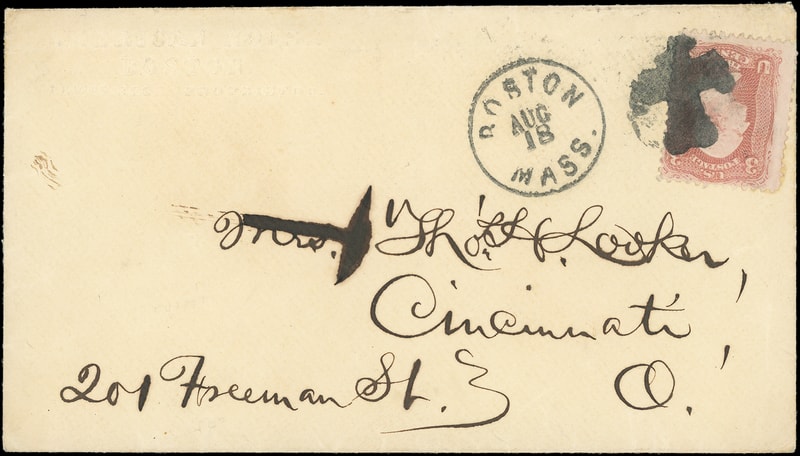 BOSTON
AUG
18
MASS.
Mrs. Thos. H. Looker,
Cincinnati
201 Freeman St. O.